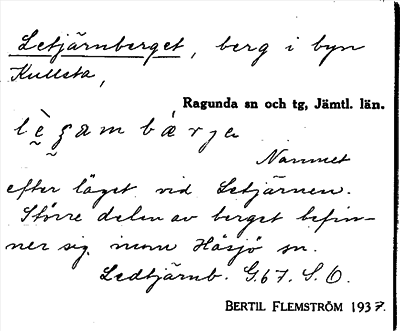 Letjärnberget, berg i byn
Kullsta,
Ragunda sn och tg, Jämtl. län.
Namnet
efter läget vid Letjärnen.
Större delen av berget befin-
ner sig inom Håsjö sn.
Ledtjärnb. G.67. S.O.
BERTIL FLEMSTRÖM 1937.